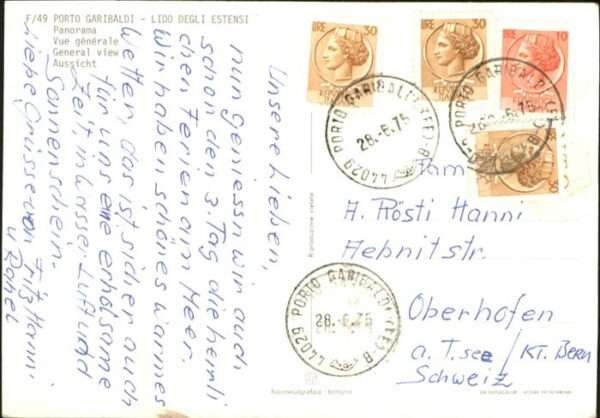 F/49 PORTO GARIBALDI - LIDO DEGLI ESTENSI
Panorama
Vue générale
General view
Aussicht
Unsere Lieben,
nun geniessn wir auch
schon den 3. Tag die heml
chen Ferien am Meer.
Wir haben schönes warmes
Wetter, das ist sicher auch
für uns eine erholsame
Zeit, in Wasser Luft und
Sonnenschein.
Liebe Grüsse von Fritz Hanni
u Rahel
LIRE 30
LIRE 30
LIRE 10
30
44029 PORTO GARIBALDI (FE) - B
28.-6.75
44029 PORTO GARIBALDI (FE) - B
28.-6.75
44029 PORTO GARIBALDI (FE) - B
28.-6.75
Fam.
A. Rösti Hanni
Aebnitstr.
Oberhofen
a. T.see / KT. Bern
Schweiz
Riproduzione vietata